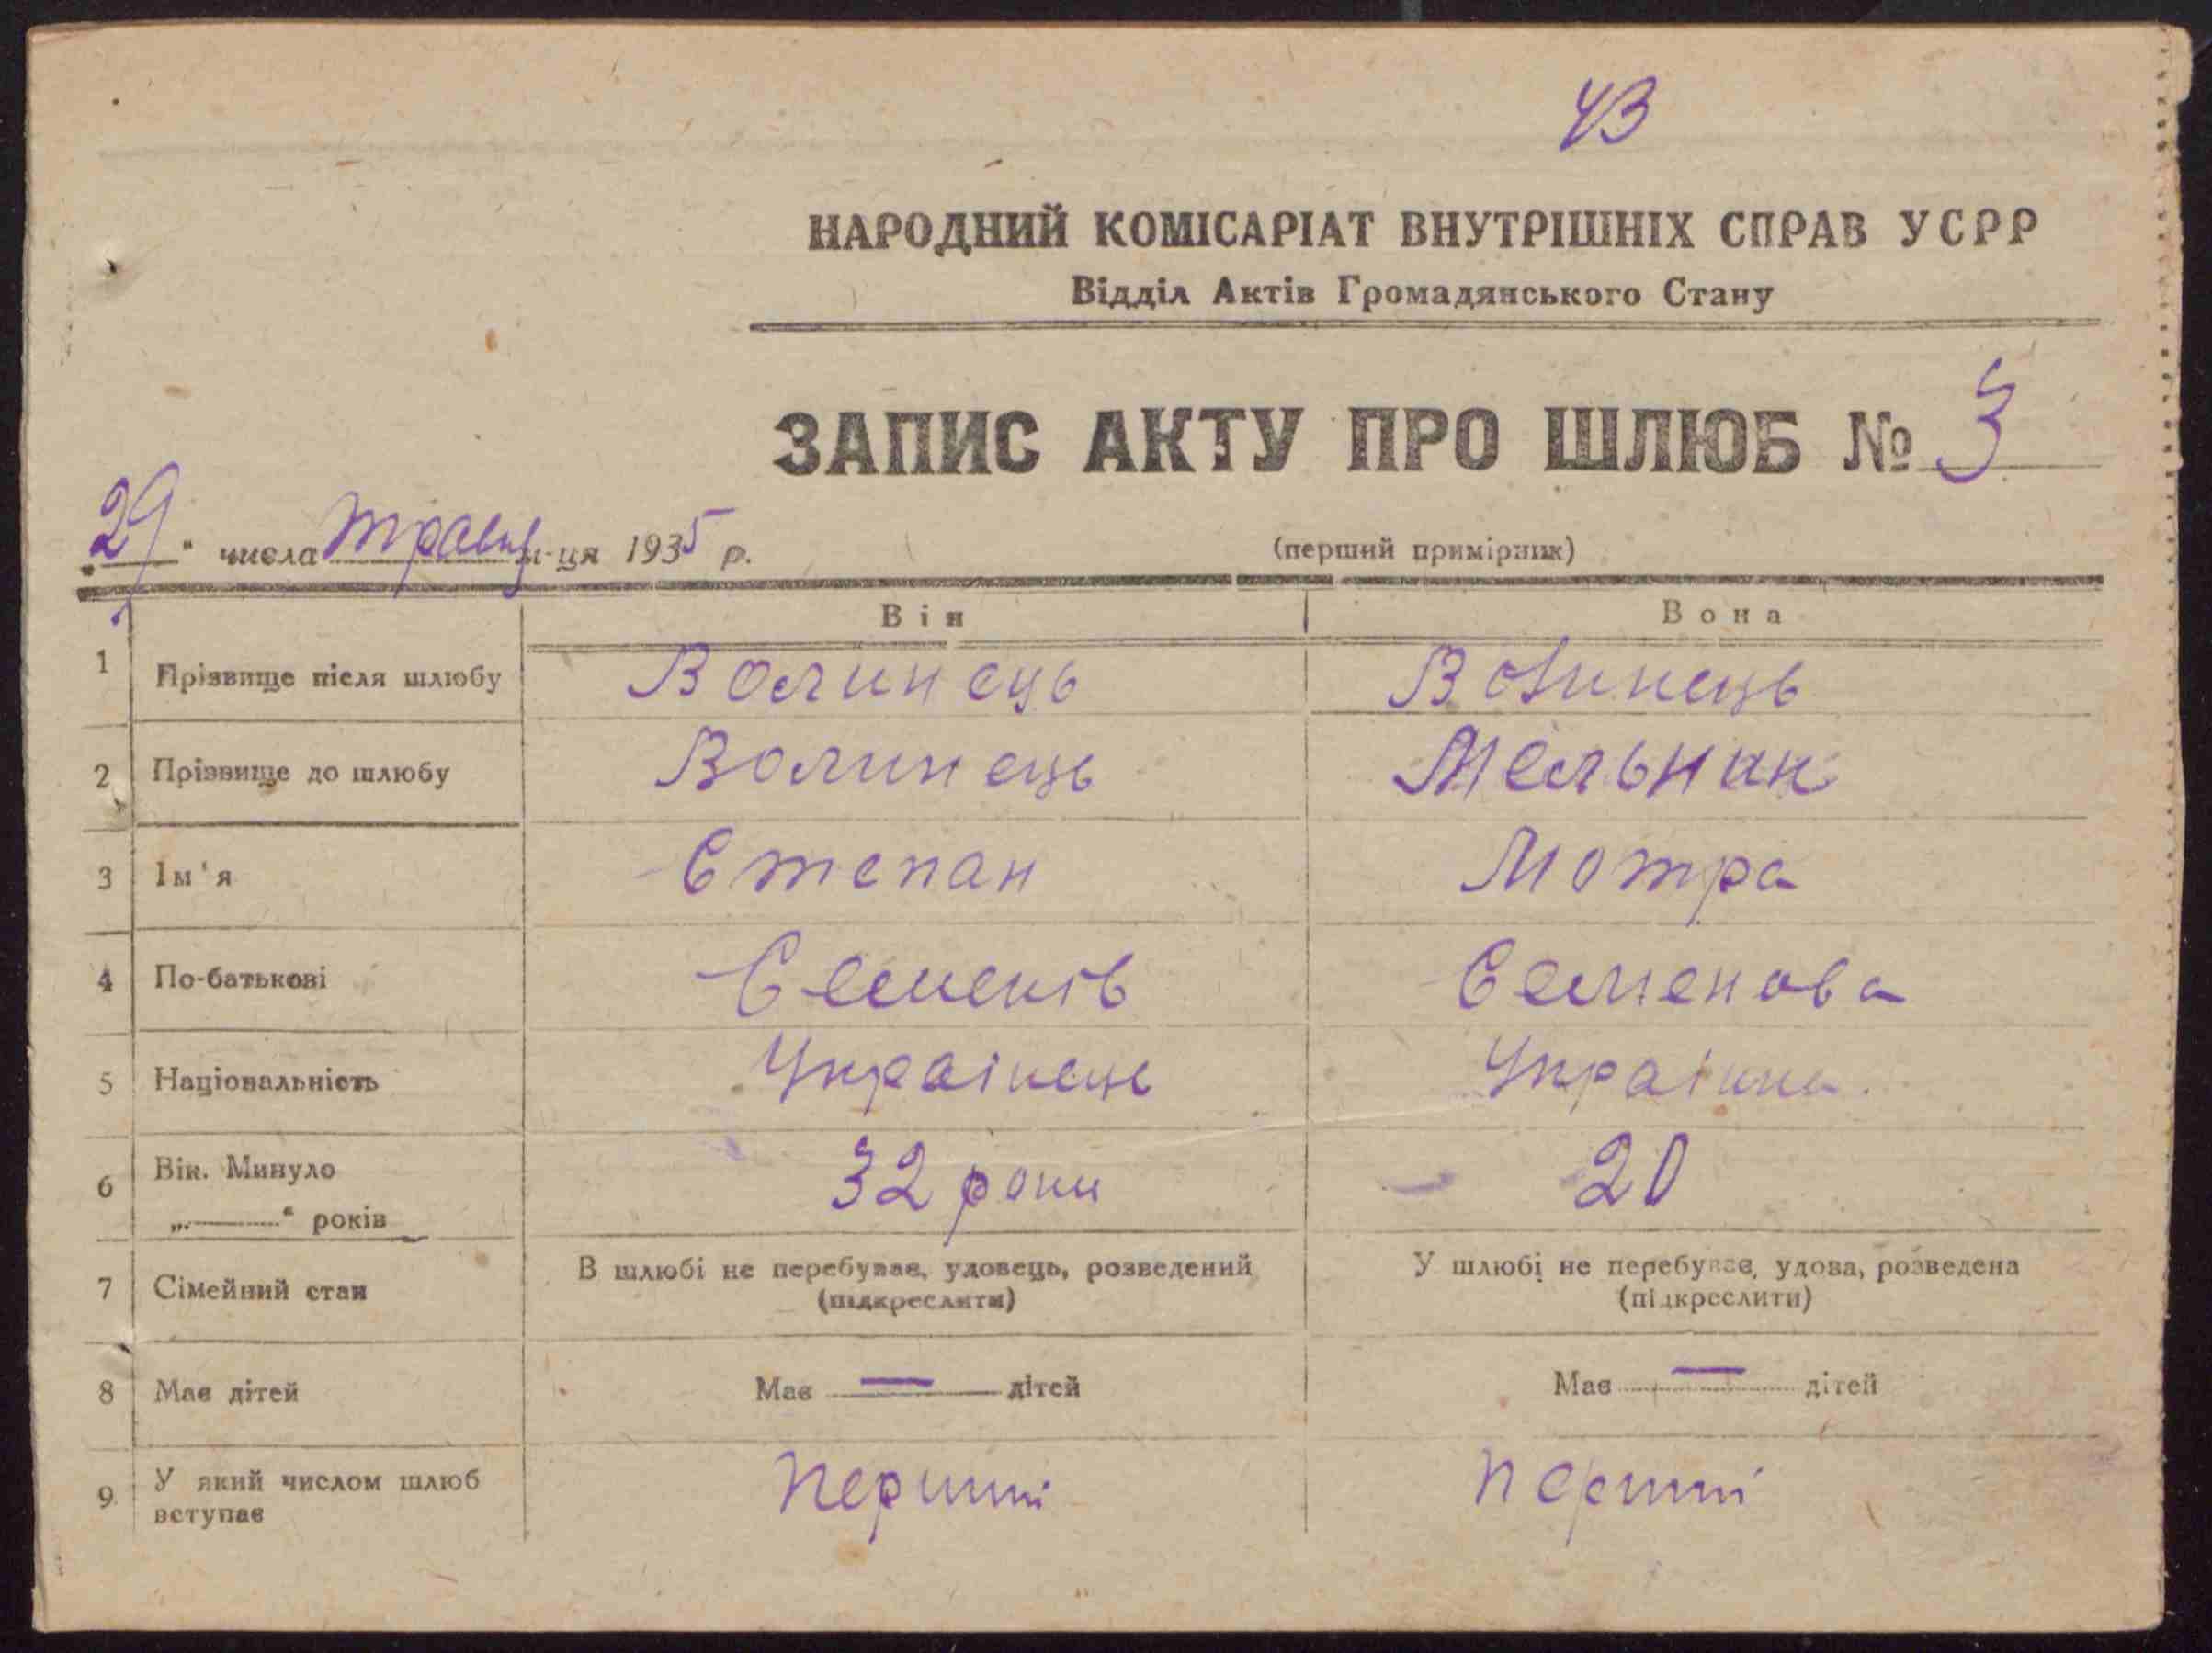 43
НАРОДНИЙ КОМІСАРІАТ ВНУТРІШНІХ СПРАВ УСРР
Відділ Актів Громадянського Стану
ЗАПИС АКТУ ПРО ШЛЮБ № 3
„29“ числа травня м-ця 1935 р.
(перший примірник)
Він Вона
1 Прізвище після шлюбу Волинець Волинець
2 Прізвище до шлюбу Волинець Мельник
3 Ім'я Степан Мотра
4 По-батькові Семенів Семенова
5 Національність Українець Українка.
6 Вік. Минуло 32 роки 20
„——“ років
7 Сімейний стан В шлюбі не перебував, удовець, розведений У шлюбі не перебуває, удова, розведена
(підкреслити) (підкреслити)
8 Має дітей Має — дітей Має — дітей
9 У який числом шлюб перший перший
вступає